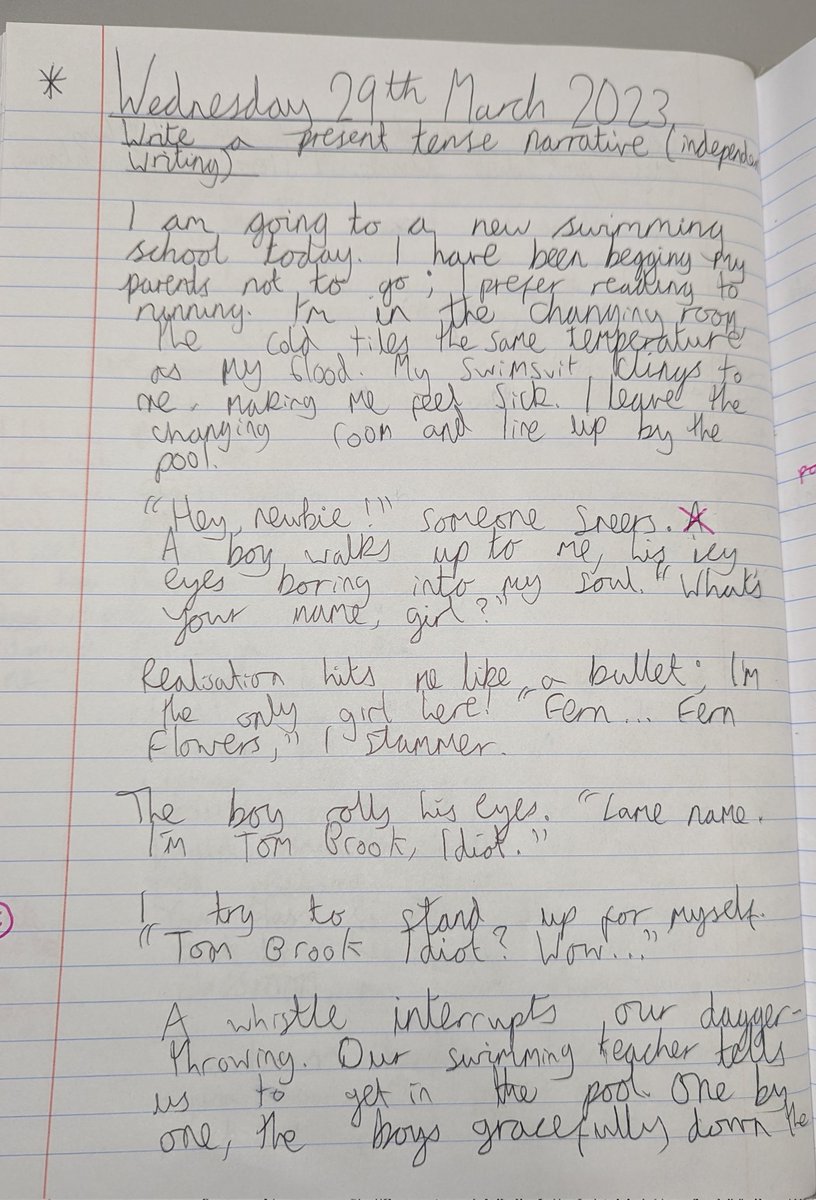 *
Wednesday 29th March 2023
Write a present tense narrative (independen
writing)
I am going to a new swimming
school today. I have been begging my
parents not to go; I prefer reading to
running. I'm in the changing room,
the cold tiles the same temperature
as my blood. My swimsuit clings to
me, making me feel sick. I leave the
changing room and line up by the
pool.
"Hey, newbie!" someone sneers. A
A boy walks up to me, his icy
eyes boring into my soul. "What's
your name, girl?"
Realisation hits me like a bullet; I'm
the only girl here! "Fern... Fern
Flowers," I stammer.
The boy rolls his eyes. "Lame name.
I'm Tom Brook, Idiot."
I try to stand up for myself.
"Tom Brook Idiot? Wow..."
A whistle interrupts our dagger-
throwing. Our swimming teacher tells
us to get in the pool. One by
one, the boys gracefully down the